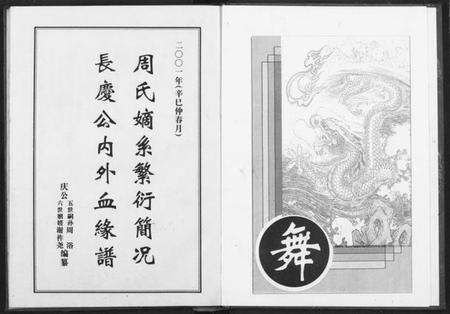 二〇〇一年(辛巳仲春月)
周氏嫡系繁衍简况
長慶公内外血緣譜
庆公 五世嗣孙周 洛
六世甥婿谢作尧 编纂
舞